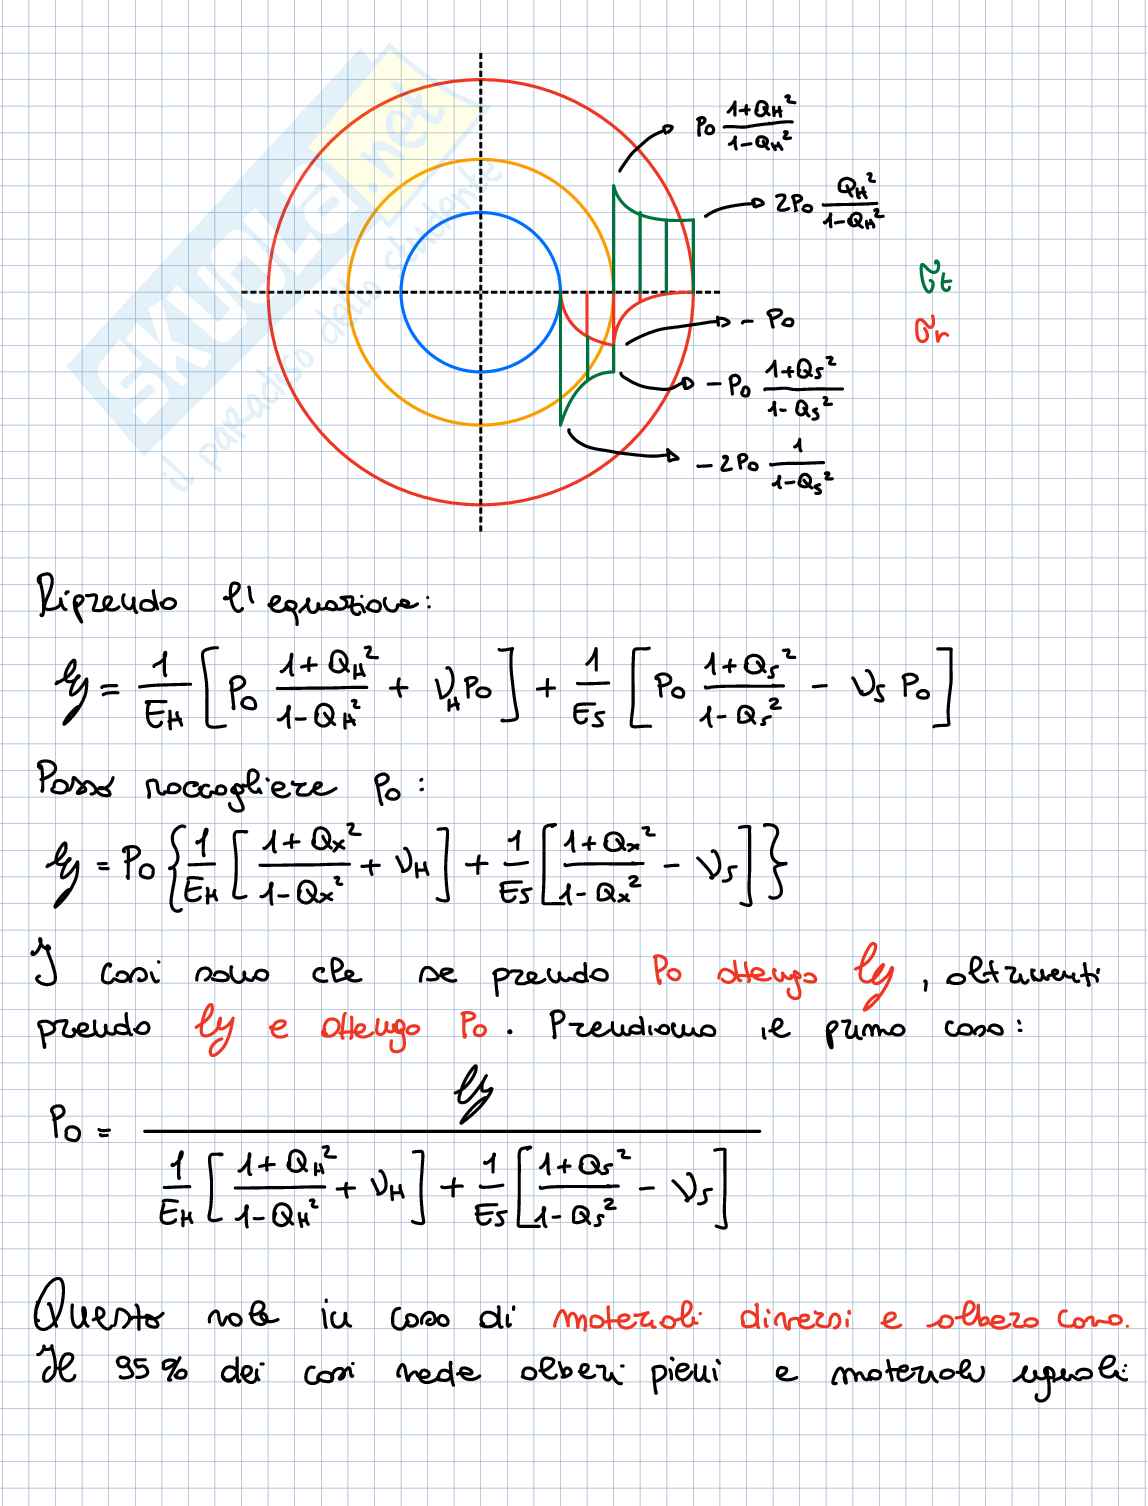 SKUOLA.net
il paradiso dello studente
P₀ (1+Q_H²)/(1-Q_H²)
2P₀ Q_H²/(1-Q_H²)
σt
σr
- P₀
- P₀ (1+Q_S²)/(1-Q_S²)
- 2P₀ 1/(1-Q_S²)
Riprendo l'equazione:
ly = 1/E_H [P₀ (1+Q_H²)/(1-Q_H²) + ν_H P₀] + 1/E_S [P₀ (1+Q_S²)/(1-Q_S²) - ν_S P₀]
Posso raccogliere P₀:
ly = P₀ {1/E_H [(1+Q_x²)/(1-Q_x²) + ν_H] + 1/E_S [(1+Q_x²)/(1-Q_x²) - ν_S]}
I casi sono che se prendo P₀ ottengo ly, altrimenti
prendo ly e ottengo P₀. Prendiamo il primo caso:
P₀ = ly / (1/E_H [(1+Q_H²)/(1-Q_H²) + ν_H] + 1/E_S [(1+Q_S²)/(1-Q_S²) - ν_S])
Questo vale in caso di materiali diversi e albero cavo.
Il 95% dei casi vede alberi pieni e materiali uguali: